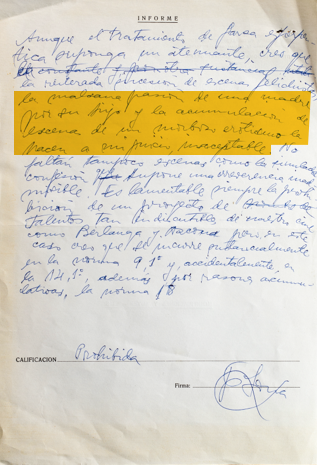 INFORME
Aunque el tratamiento de farsa esperpén-
tica suponga un atenuante, creo que
la reiterada procesión de escenas
la malsana pasión de una madre
por su hijo y la acumulación de
escenas de un morboso erotismo le
hacen a mi juicio inaceptable. No
faltan tampoco escenas como la simulada
confesión supone una irreverencia inad-
misible. Es lamentable siempre la prohi-
bición de un proyecto de
talentos tan indiscutibles de nuestro cine
como Berlanga y Azcona pero en este
caso creo que él incurre sustancialmente
en la norma 9,1º y, accidentalmente, en
la 14,1º, además, por razones acumu-
lativas, la norma 18
CALIFICACION Prohibida
Firma: